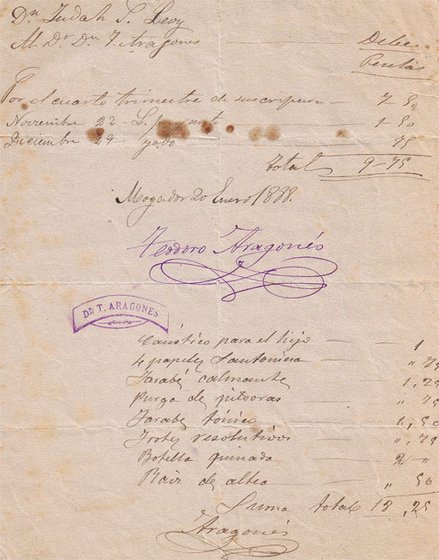 Dn Judah S. Levy
M. Dr Dn T. Aragones Debe
Peseta
Por el cuarto trimestre de suscripcion — 7 50
Noviembre 22 - — 1 50
Diciembre 29 — 75
total 9-75
Mogador 20 Enero 1888.
Teodoro Aragonés
DR T. ARAGONES
Caústico para el hijo — 1
4 papeles Santonina — " 75
Jarabe calmante — 1,25
Purga de — " 75
Jarabe tónico — 1,50
Frotes resolutivos — ",75
Botella quinada — 2 "
Raiz de altea — " 50
Suma total 12,25
Aragonés